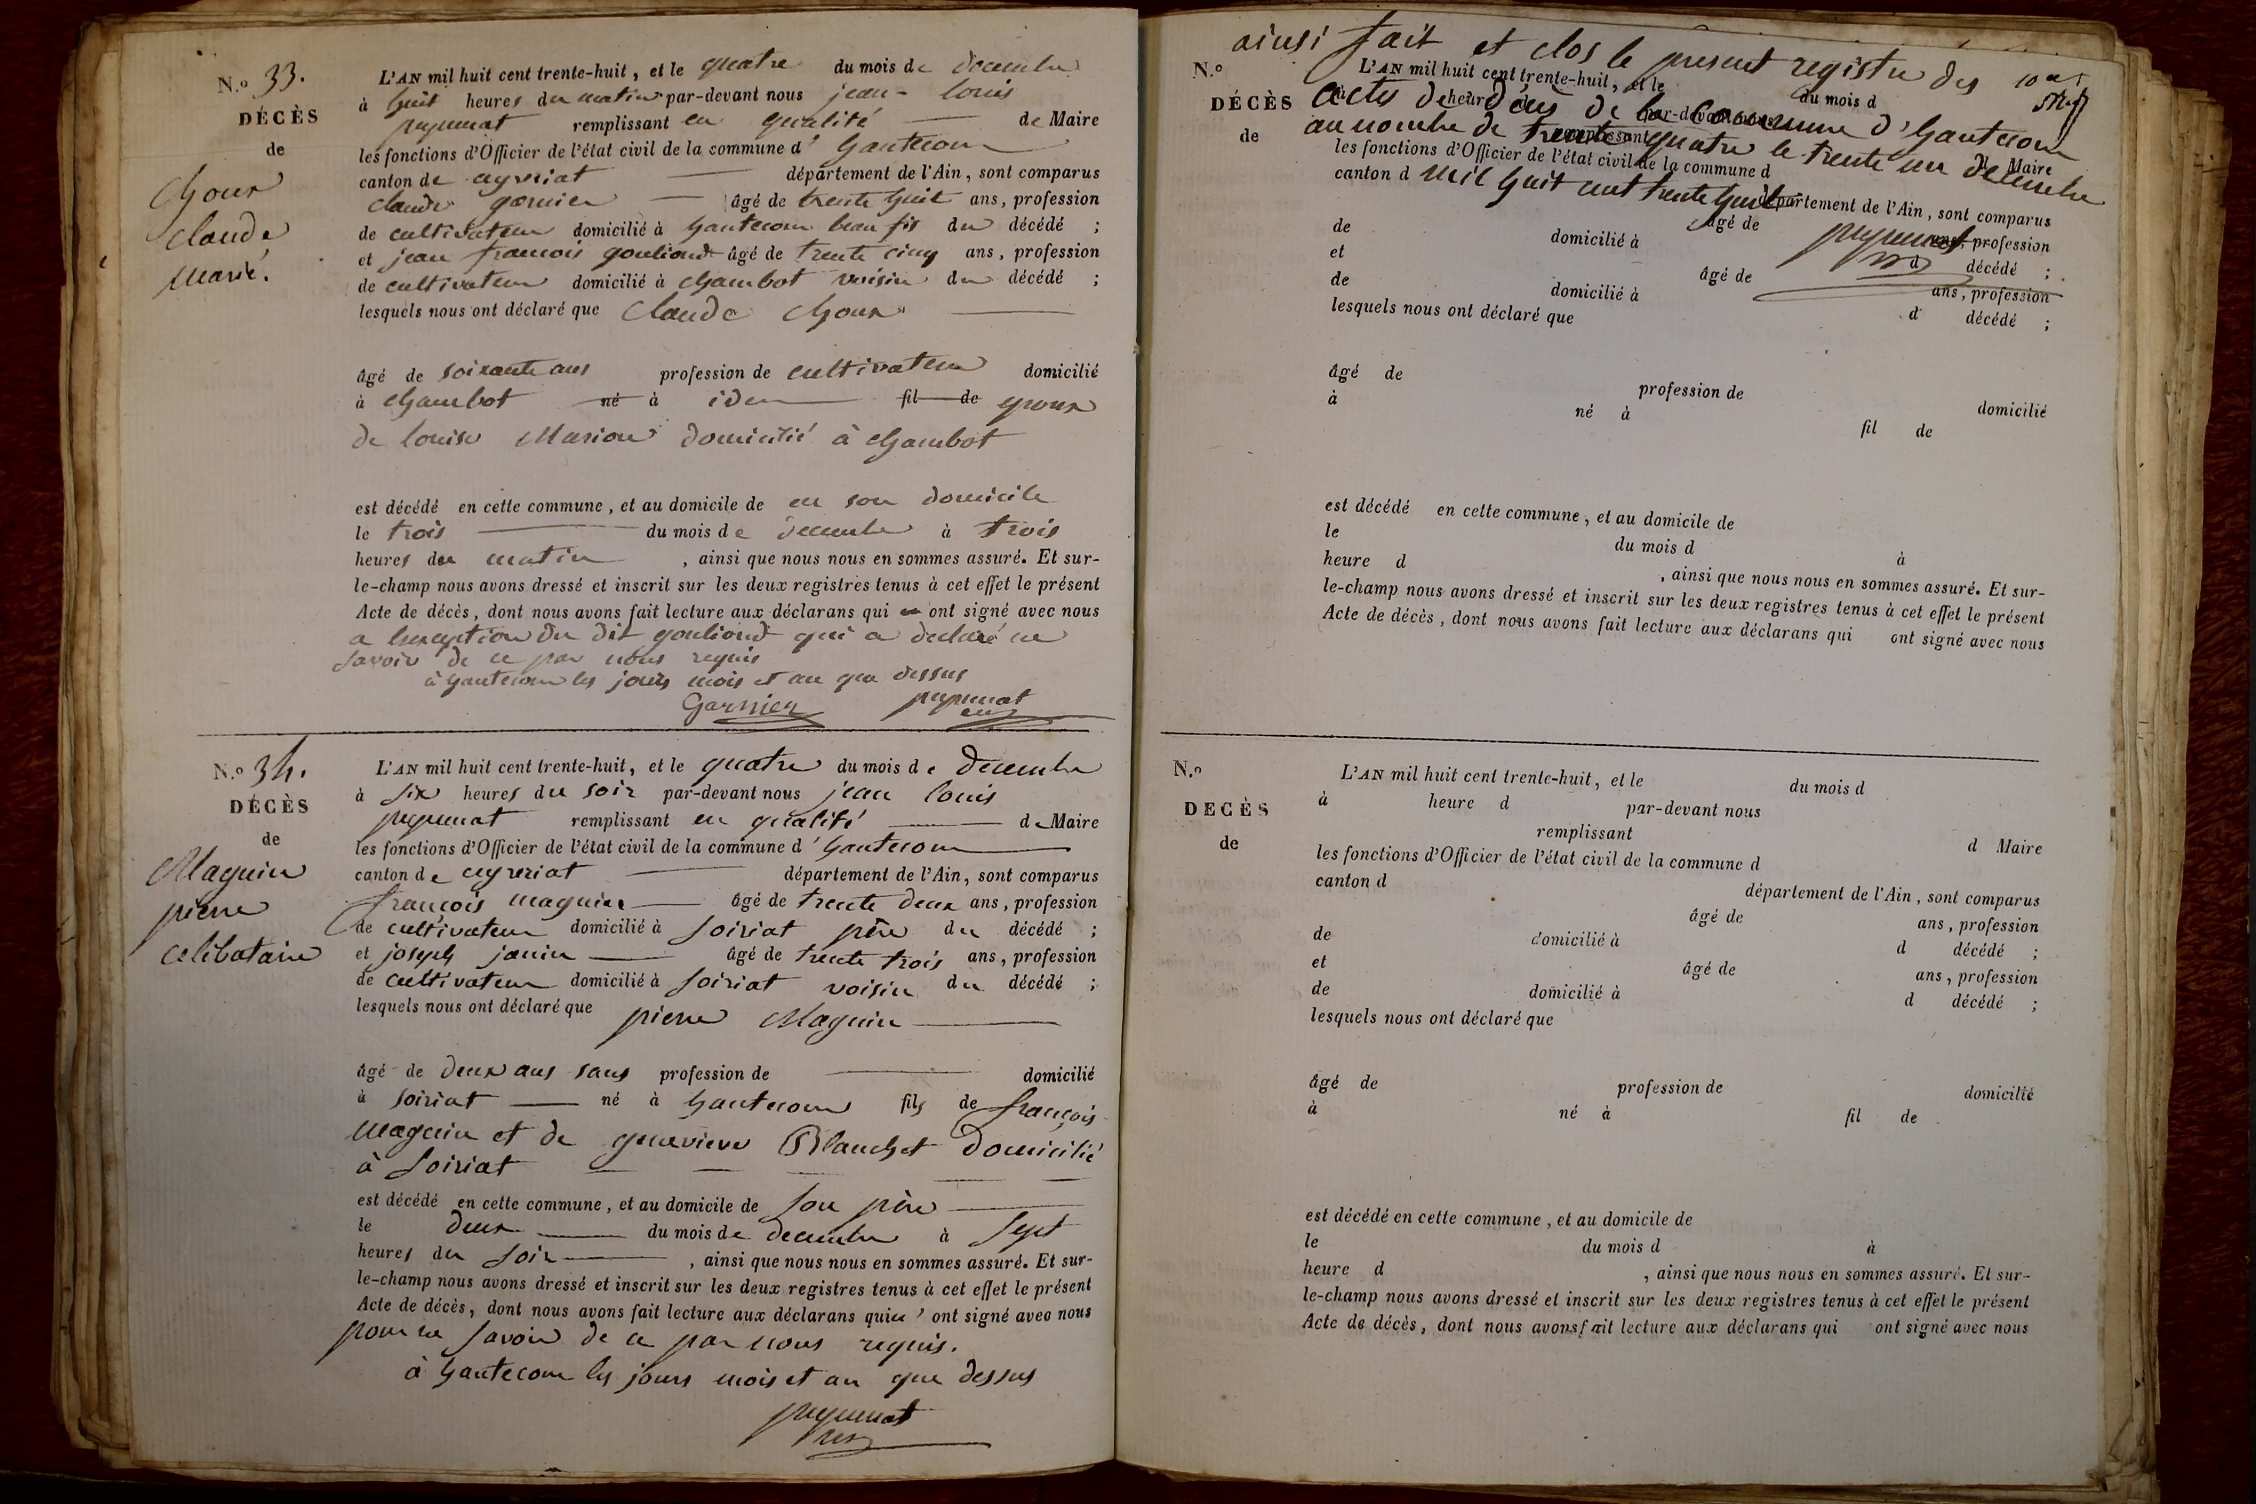 N.º 33.
DÉCÈS
de
Choux
claude
marié.
L'AN mil huit cent trente-huit, et le quatre du mois de decembre
à huit heures du matin par-devant nous jean-louis
puyunat remplissant en qualité de Maire
les fonctions d'Officier de l'état civil de la commune d'hautecour
canton de ceyzeriat département de l'Ain, sont comparus
claude garnier âgé de trente huit ans, profession
de cultivateur domicilié à hautecour beau fils du décédé ;
et jean francois gouliond âgé de trente cinq ans, profession
de cultivateur domicilié à chambot voisin du décédé ;
lesquels nous ont déclaré que claude choux
âgé de soixante ans profession de cultivateur domicilié
à chambot né à idem fil de epoux
de louise Marion domicilié à chambot
est décédé en cette commune, et au domicile de en son domicile
le trois du mois de decembre à trois
heures du matin, ainsi que nous nous en sommes assuré. Et sur-
le-champ nous avons dressé et inscrit sur les deux registres tenus à cet effet le présent
Acte de décès, dont nous avons fait lecture aux déclarans qui ont signé avec nous
a lexception du dit gouliond qui a declaré ne
savoir de ce par nous requis
à hautecour les jours mois et an que dessus
Garnier puyunat
N.º 34.
DÉCÈS
de
Maguin
pierre
celibataire
L'AN mil huit cent trente-huit, et le quatre du mois de decembre
à six heures du soir par-devant nous jean louis
puyunat remplissant en qualité de Maire
les fonctions d'Officier de l'état civil de la commune d'hautecour
canton de ceyzeriat département de l'Ain, sont comparus
francois maguin âgé de trente deux ans, profession
de cultivateur domicilié à soiriat père du décédé ;
et joseph janin âgé de trente trois ans, profession
de cultivateur domicilié à soiriat voisin du décédé ;
lesquels nous ont déclaré que pierre Maguin
âgé de deux ans sans profession de domicilié
à soiriat né à hautecour fils de françois
maguin et de genevieve Blanchet domicilié
à soiriat
est décédé en cette commune, et au domicile de son père
le deux du mois de decembre à sept
heures du soir, ainsi que nous nous en sommes assuré. Et sur-
le-champ nous avons dressé et inscrit sur les deux registres tenus à cet effet le présent
Acte de décès, dont nous avons fait lecture aux déclarans qui n'ont signé avec nous
pour ne savoir de ce par nous requis.
à hautecour les jours mois et an que dessus
puyunat
ainsi fait et clos le present registre des
actes de décès de la commune d'hautecour
au nombre de trente quatre le trente un decembre
mil huit cent trente huit
puyunat
N.º
DÉCÈS
de
L'AN mil huit cent trente-huit, et le du mois d
à heure d par-devant nous
remplissant d Maire
les fonctions d'Officier de l'état civil de la commune d
canton d département de l'Ain, sont comparus
âgé de ans, profession
de domicilié à d décédé ;
et âgé de ans, profession
de domicilié à d décédé ;
lesquels nous ont déclaré que
âgé de profession de domicilié
à né à fil de
est décédé en cette commune, et au domicile de
le du mois d à
heure d , ainsi que nous nous en sommes assuré. Et sur-
le-champ nous avons dressé et inscrit sur les deux registres tenus à cet effet le présent
Acte de décès, dont nous avons fait lecture aux déclarans qui ont signé avec nous
N.º
DECÈS
de
L'AN mil huit cent trente-huit, et le du mois d
à heure d par-devant nous
remplissant d Maire
les fonctions d'Officier de l'état civil de la commune d
canton d département de l'Ain, sont comparus
âgé de ans, profession
de domicilié à d décédé ;
et âgé de ans, profession
de domicilié à d décédé ;
lesquels nous ont déclaré que
âgé de profession de domicilié
à né à fil de
est décédé en cette commune, et au domicile de
le du mois d à
heure d , ainsi que nous nous en sommes assuré. Et sur-
le-champ nous avons dressé et inscrit sur les deux registres tenus à cet effet le présent
Acte de décès, dont nous avons fait lecture aux déclarans qui ont signé avec nous